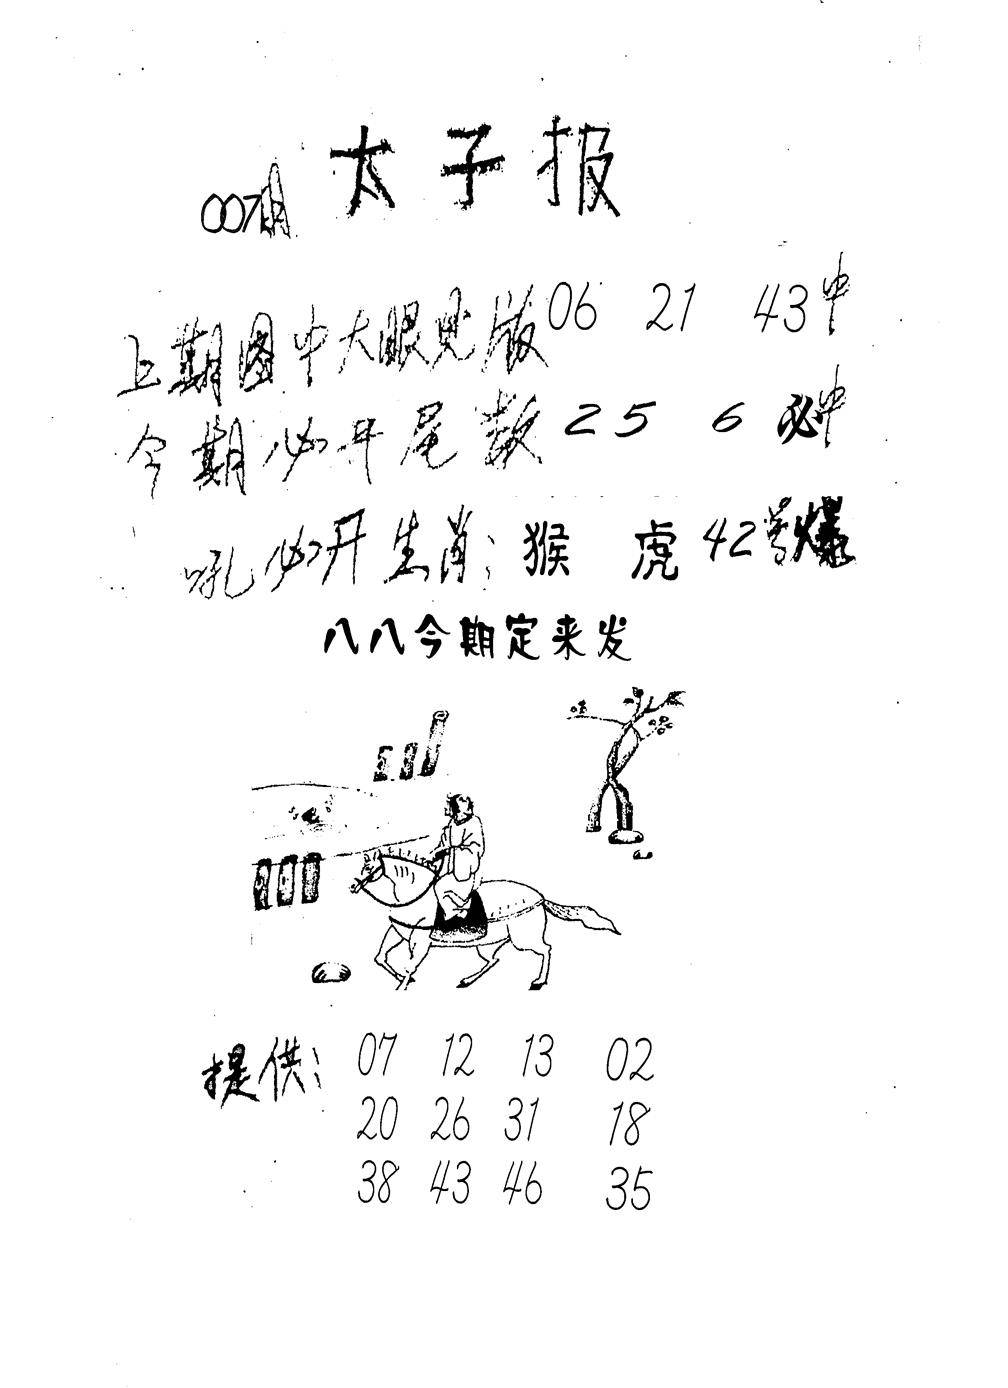 太子报
007期
上期图中大眼见版06 21 43中
今期必开尾数2 5 6必中
吼必开生肖：猴 虎42号爆
八八今期定来发
提供：07 12 13 02
20 26 31 18
38 43 46 35